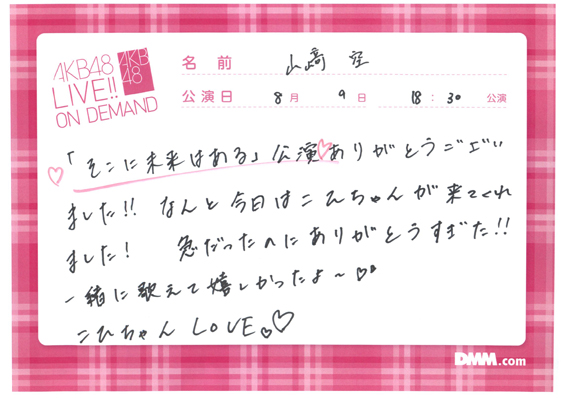 AKB48
LIVE!!
ON DEMAND
AKB
48
名前 山﨑 空
公演日 8月 9日 18:30 公演
「そこに未来はある」公演♡ありがとうございい
ました!! なんと今日はこひちゃんが来てくれ
ました! 急だったのにありがとうすぎた!!
一緒に歌えて嬉しかったよ〜♡
こひちゃん LOVE♡
DMM.com